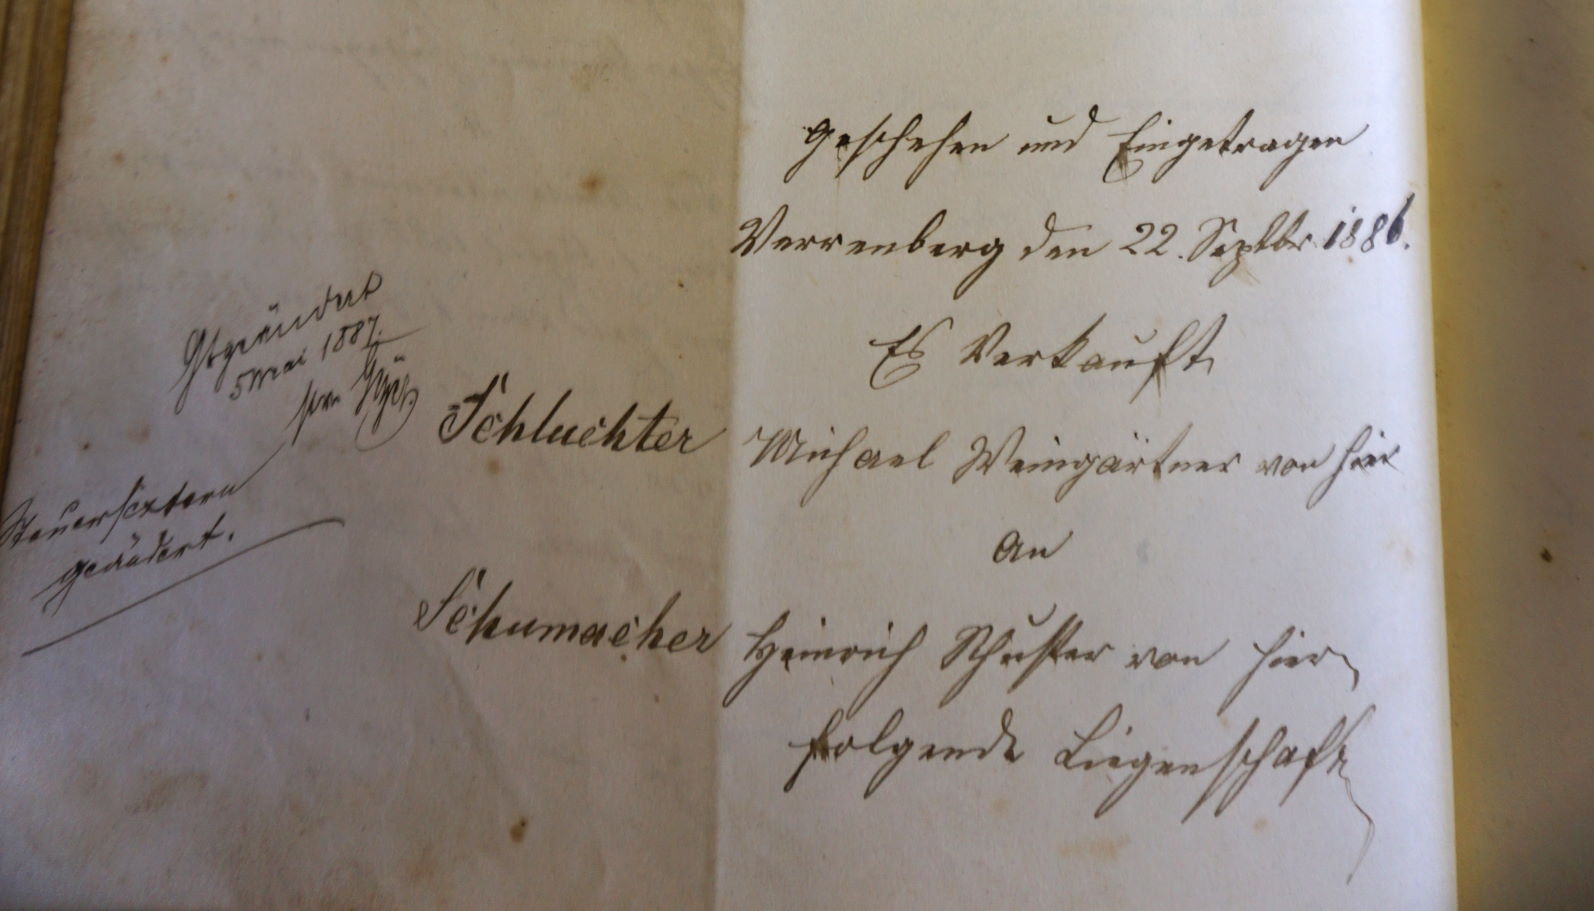 Geschehen und Eingetragen
Verrenberg den 22. Septbr 1886.
Es Verkauft
Schluchter Michael Weingärtner von hier
an
Schumacher Heinrich Schuster von hier
folgende Liegenschaft
5 Mai 1887.
Steuersextern
geändert.